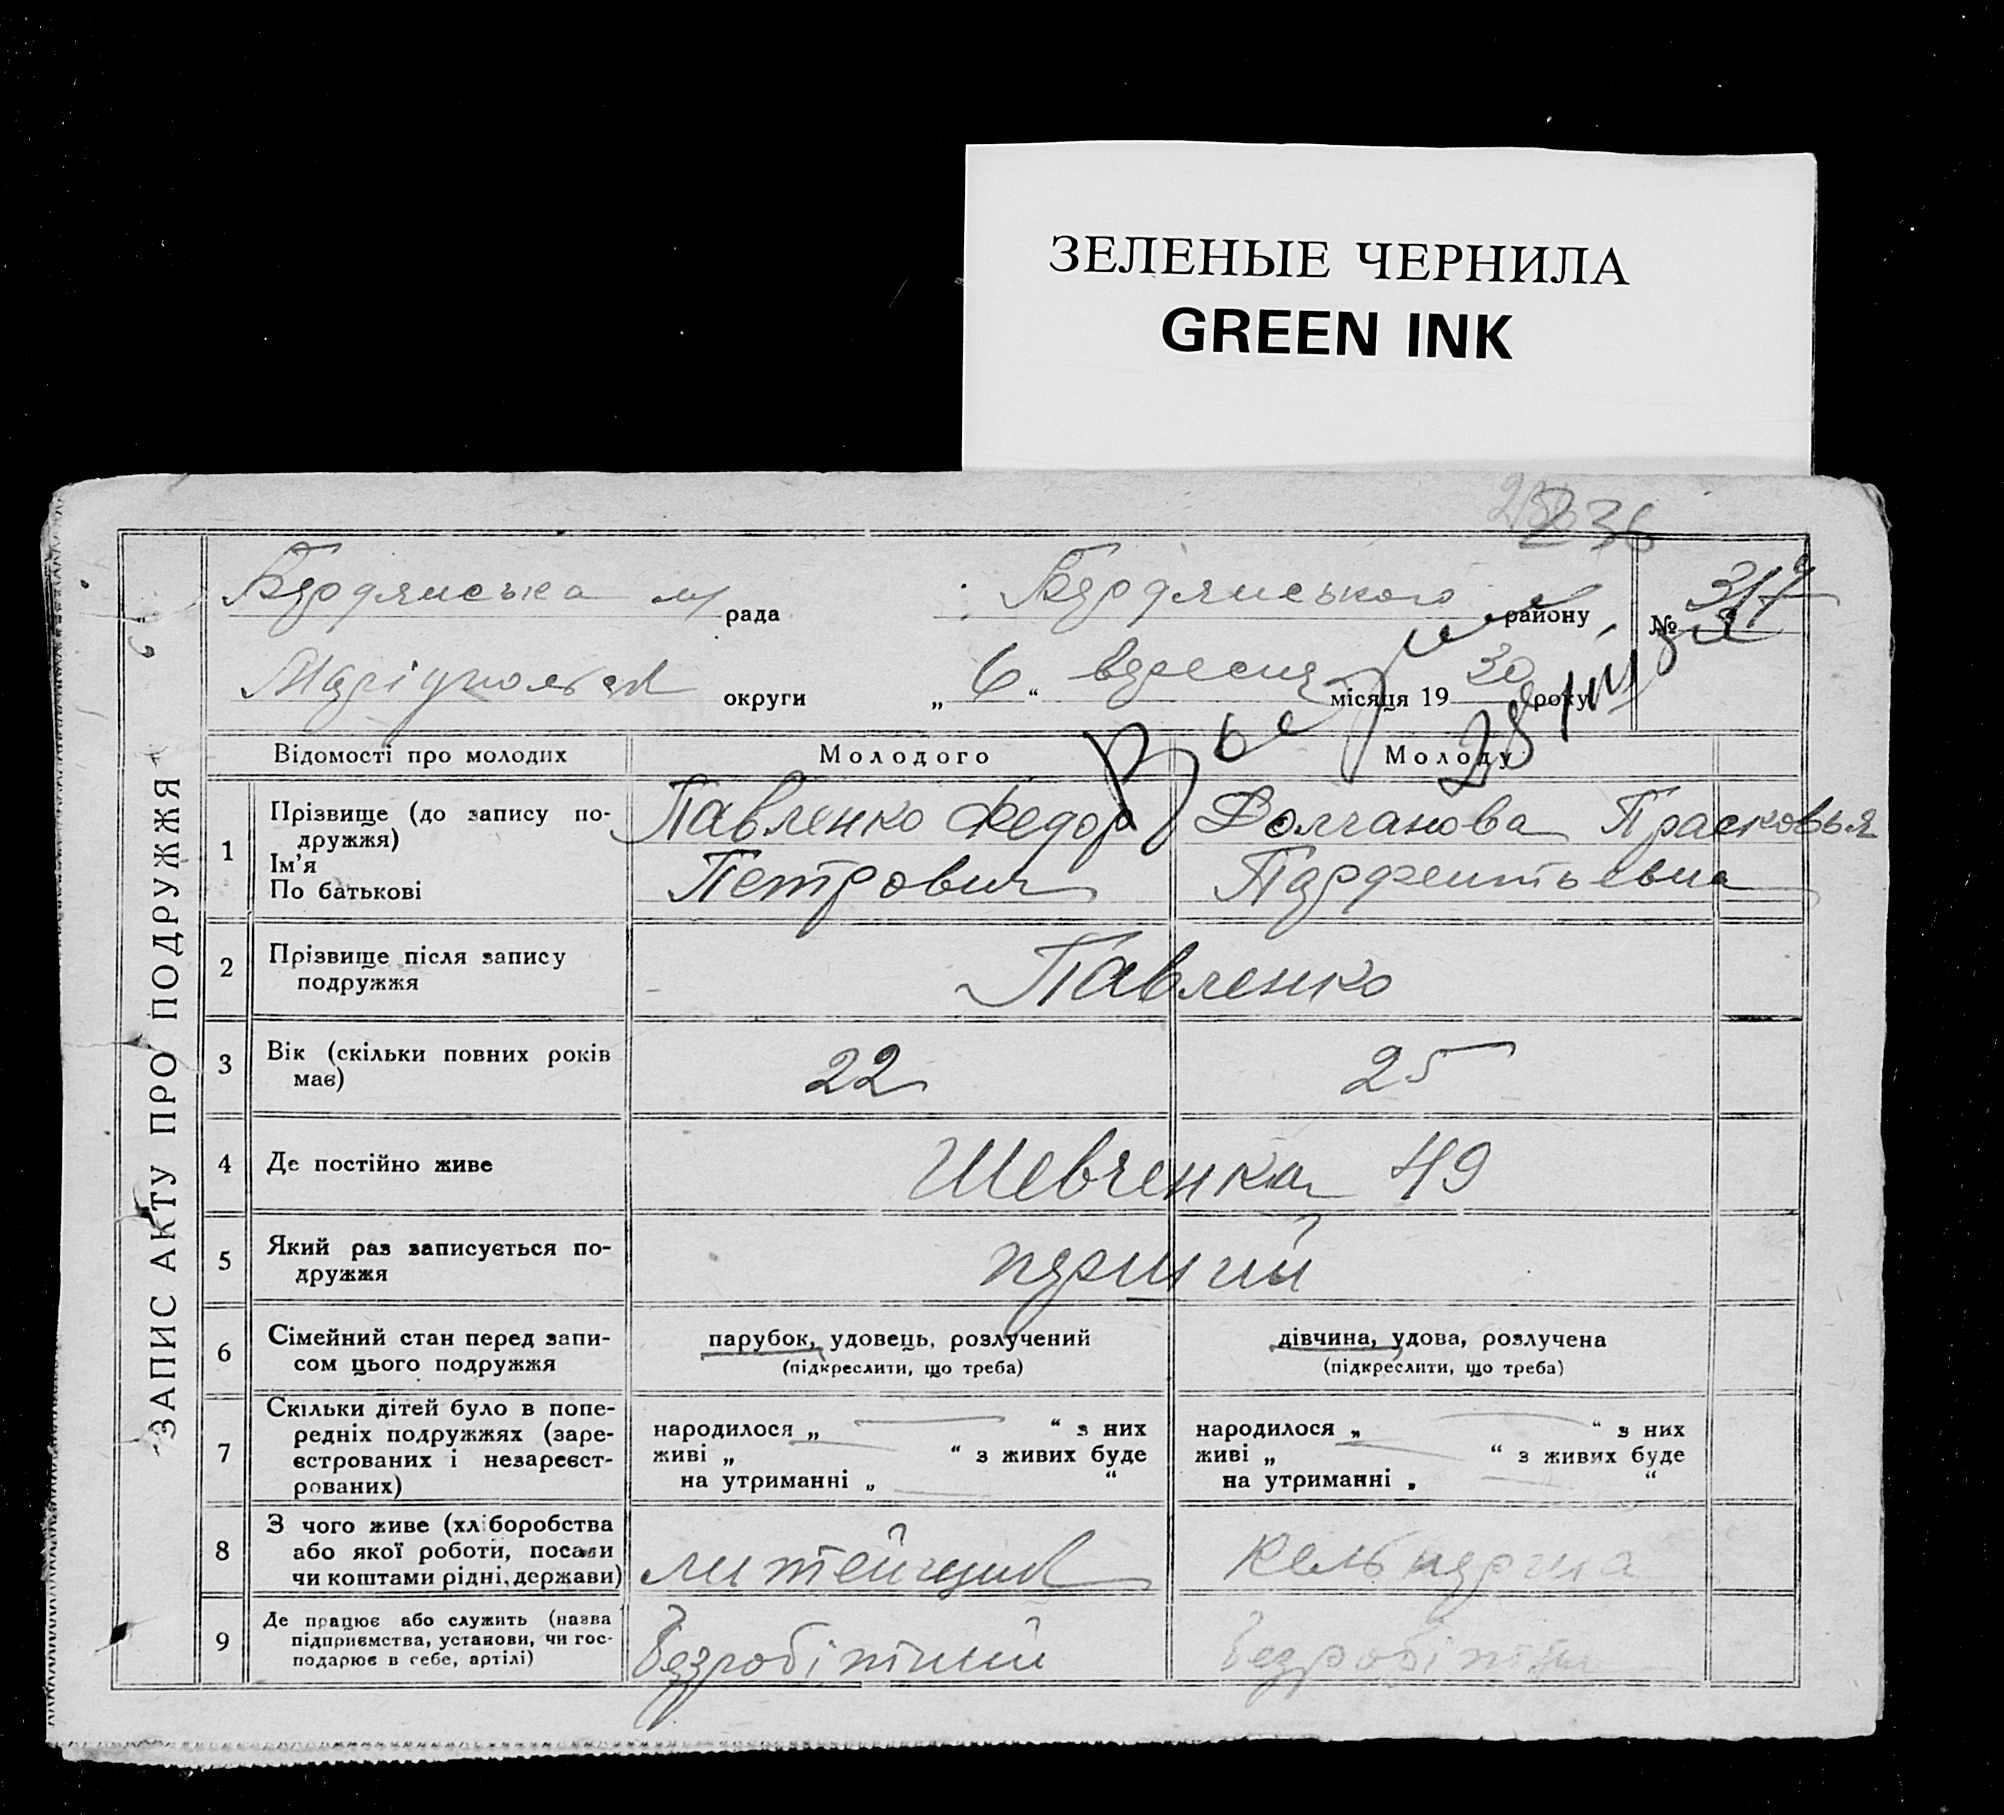 ЗЕЛЕНЫЕ ЧЕРНИЛА
GREEN INK
236
Бердянська м рада Бердянського району № 317
Маріупольськ округи „6“ вересня місяця 1930 року
28/III
ЗАПИС АКТУ ПРО ПОДРУЖЖЯ
Відомості про молодих Молодого Молоду
1 Прізвище (до запису по-
дружжя)
Ім'я
По батькові
Павленко Федор
Петрович
Долчанова Прасковья
Парфентьевна
2 Прізвище після запису
подружжя
Павленко
3 Вік (скільки повних років
має)
22 25
4 Де постійно живе Шевченка 49
5 Який раз записується по-
дружжя
перший
6 Сімейний стан перед запи-
сом цього подружжя
парубок, удовець, розлучений
(підкреслити, що треба)
дівчина, удова, розлучена
(підкреслити, що треба)
7 Скільки дітей було в попе-
редніх подружжях (заре-
єстрованих і незареєст-
рованих)
народилося „ “ з них
живі „ “ з живих буде
на утриманні „ “
народилося „ “ з них
живі „ “ з живих буде
на утриманні „ “
8 З чого живе (хліборобства
або якої роботи, посади
чи коштами рідні, держави)
литейщик кельнерша
9 Де працює або служить (назва
підприємства, установи, чи гос-
подарює в себе, артілі)
Безробітний безробітня